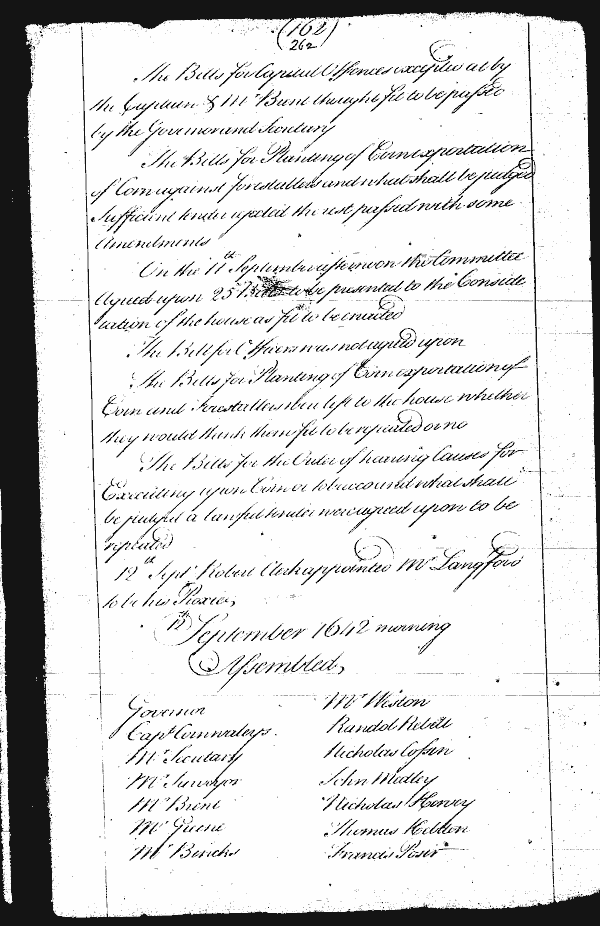 (162)
262
The Bills for Capitall Offences excepted at by
the Captain & Mr Brent thought fit to be passed
by the Governor and Secretary
The Bills for Planting of Corn exportation
of Corn against forestallers and what shall be judged
Sufficient tender upon the rest passed with some
Amendments
On the 11th September afternoon the Committee
Agreed upon 25 Bills to be presented to the Conside
ration of the house as fit to be enacted
The Bill for Officers was not agreed upon
The Bills for Planting of Corn exportation of
Corn and Forestallers were left to the house whether
they would think them fit to be repeated or no
The Bills for the Order of hearing Causes for
Executing upon Corn or tobacco and what shall
be judged a lawful tender were agreed upon to be
repeated
12th Sept Robert Clerk appointed Mr Langford
to be his Proxie,
12th September 1642 morning
Assembled,
Governor
Capt Cornwaleys.
Mr Secretary
Mr Surveyor
Mr Brent
Mr Greene
Mr Bincks
Mr Weston
Randol Revell
Nicholas Cossin
John Medley
Nicholas Harvey
Thomas Hebden
Francis Posie